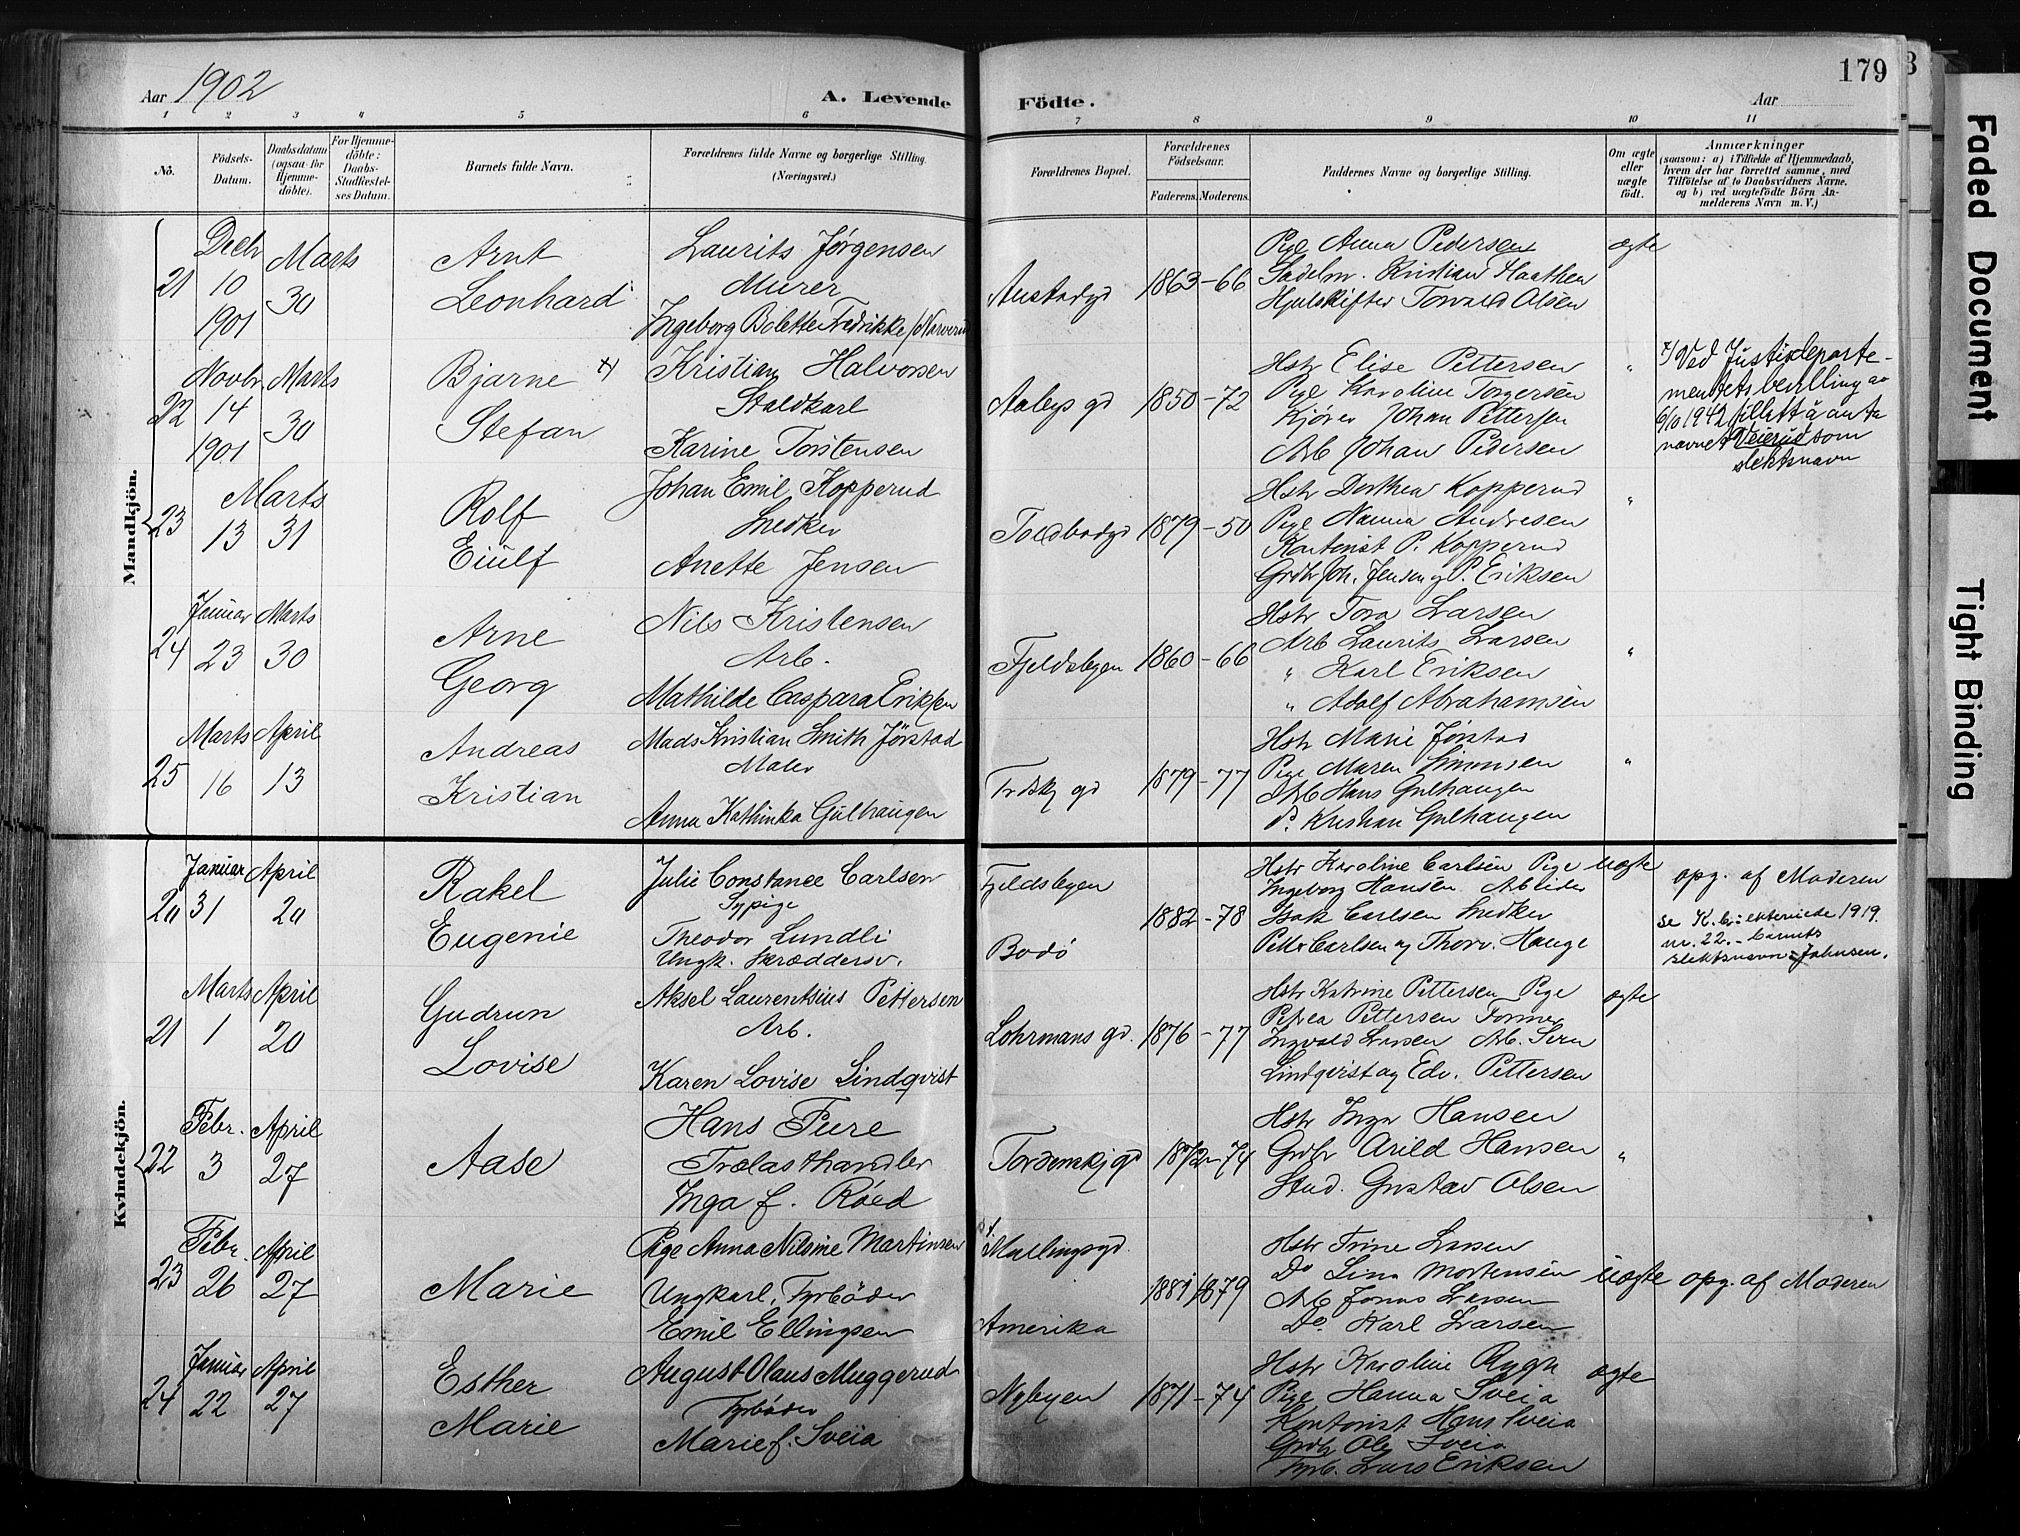 Aar 1902
A. Levende Födte.
Aar
179
1 2 3 4 5 6 7 8 9 10 11
No.
Födsels-Datum.
Daabsdatum (ogsaa for Hjemmedöbte).
For Hjemmedöbte: Daabs-Stadfæstelses Datum.
Barnets fulde Navn.
Forældrenes fulde Navne og borgerlige Stilling. (Næringsvei.)
Forældrenes Bopæl.
Forældrenes Födselsaar.
Faderens. Moderens.
Faddernes Navne og borgerlige Stilling.
Om ægte eller uægte födt.
Anmærkninger
(saasom: a) i Tilfælde af Hjemmedaab,
hvem der har forrettet samme, med
Tilföielse af to Daabsvidners Navne,
og b) ved uægtefödte Börn An-
melderens Navn m. V.)
Mandkjön.
21
Decbr 10 1901
Marts 30
Arnt
Leonhard
Laurits Jørgensen
Murer
Ingeborg Bolette Fredrikke Narverud
1863-66
Pige Anna Pedersen
Sadelm. Kristian Haathen
Hjulskifter Torvald Olsen
ægte
22
Novbr 14 1901
Marts 30
Bjarne x)
Stefan
Kristian Halvorsen
Staldkarl
Karine Torstensen
Aabys gd
1850-72
Hstr Elise Pettersen
Pige Karoline Torgersen
Kjører Johan Pettersen
Arb Johan Pedersen
"
x) Ved Justisdeparte-
mentets bevilling av
6/10 1942 tillatt å anta
navnet Veierud som
slektsnavn
23
Marts 13
31
Rolf
Eiulf
Johan Emil Kopperud
Snedker
Anette Jensen
Toldbodgd
1879-50
Hstr Dorthea Kopperud
Pige Nanna Andresen
Kontorist P. Kopperud
Grdbr Joh. Jensen og P. Eriksen
"
24
Januar 23
Marts 30
Arne
Georg
Nils Kristensen
Arb.
Mathilde Caspara Eriksen
Fjeldsbyen
1860-66
Hstr Tora Larsen
Arb Laurits Larsen
" Karl Eriksen
" Adolf Abrahamsen
"
25
Marts 16
April 13
Andreas
Kristian
Mads Kristian Smith Jørstad
Maler
Anna Kathinka Gulhaugen
Trdskj gd
1879-77
Hstr Marie Jørstad
Pige Maren Simonsen
Arb Hans Gulhaugen
Do Kristian Gulhaugen
"
Kvindekjön.
20
Januar 31
April 20
Rakel
Eugenie
Julie Constance Carlsen
Sypige
Theodor Lundli
Ungk. Skræddersv.
Fjeldsbyen
Bodø
1882-78
Hstr Karoline Carlsen Pige
Ingeborg Hansen Arbeider
Isak Carlsen Snedker
Petter Carlsen og Thorv. Hauge
uægte
opg. af Moderen
se K.b. ekteviede 1919.
nr. 22. - barnets
slektsnavn: Johnsen.
21
Marts 1
April 20
Gudrun
Lovise
Aksel Laurentsius Pettersen
Arb.
Karen Lovise Lindqvist
Lohrmans gd.
1876-77
Hstr Katrine Pettersen Pige
Petrea Pettersen Former
Ingvald Larsen Arb. Sven
Lindqvist og Edv. Pettersen
ægte
22
Febr. 3
April 27
Aase
Hans Fure
Trælasthandler
Inga f. Røed
Tordenskj gd
1872-74
Hstr Inga Hansen
Grdbr Arild Hansen
Stud. Gustav Olsen
"
23
Febr. 26
April 27
Marie
Pige Anna Nilsine Martinsen
Ungkarl, Fyrbøder
Emil Ellingsen
Mallingsgd.
Amerika
1881 1879
Hstr Trine Larsen
Do Lina Mortensen
Arb Jonas Larsen
Do Karl Larsen
uægte
opg. af Moderen
24
Januar 22
April 27
Esther
Marie
August Olaus Muggerud
Fyrbøder
Marie f. Sveia
Nybyen
1871-74
Hstr Karoline Rygh
Pige Hanna Sveia
Kontorist Hans Sveia
Grdbr Ole Sveia
Fyrb. Lars Eriksen
ægte
Faded Document
Tight Binding